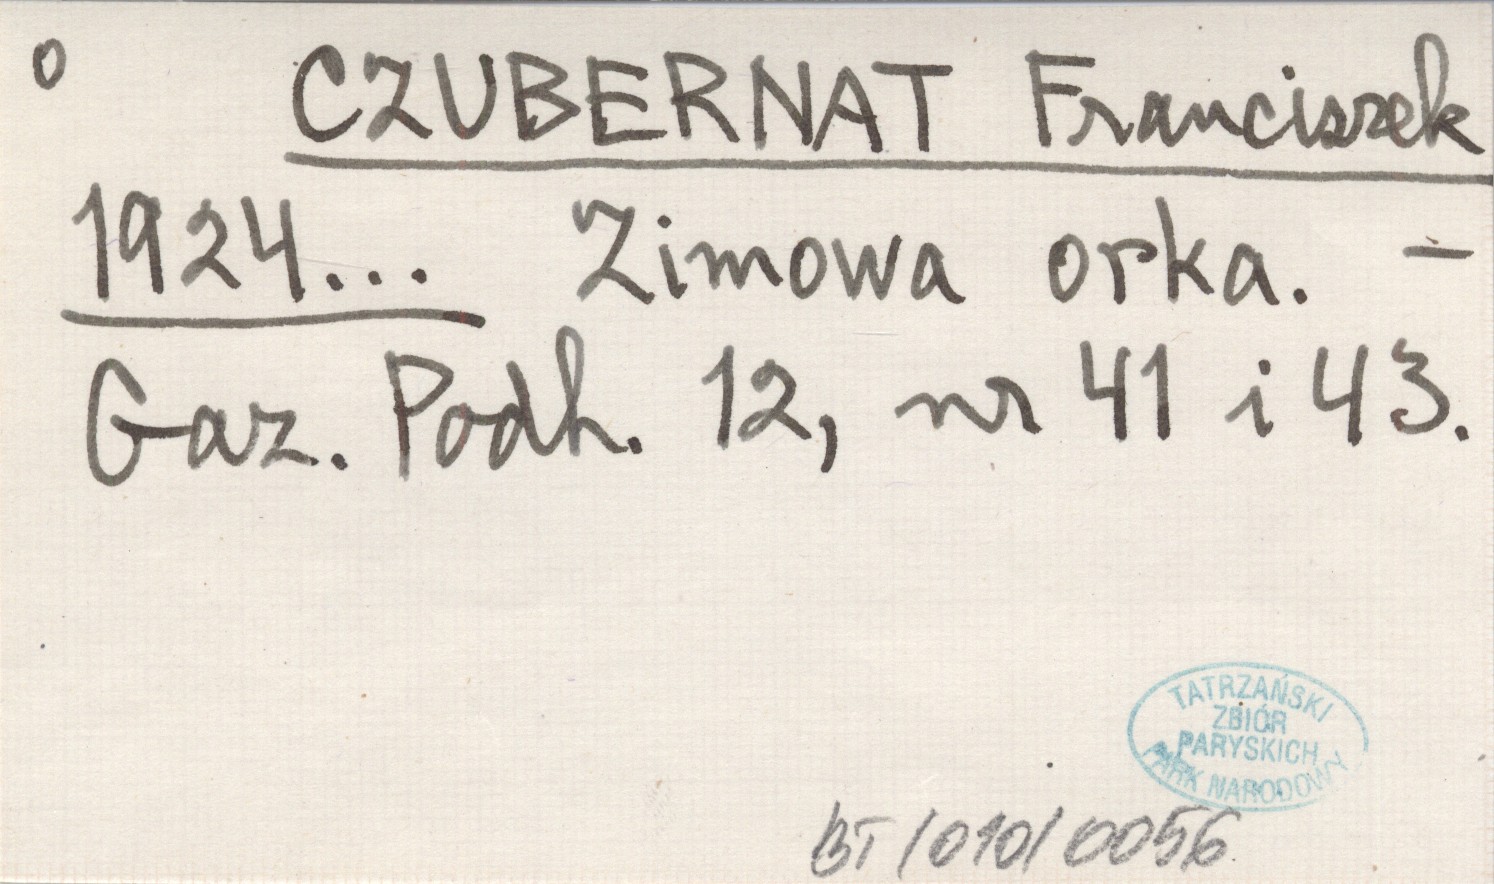 o CZUBERNAT Franciszek
1924... Zimowa orka. –
Gaz. Podh. 12, nr 41 i 43.
TATRZAŃSKI
ZBIÓR
PARYSKICH
PARK NARODOWY
BT/010/0056